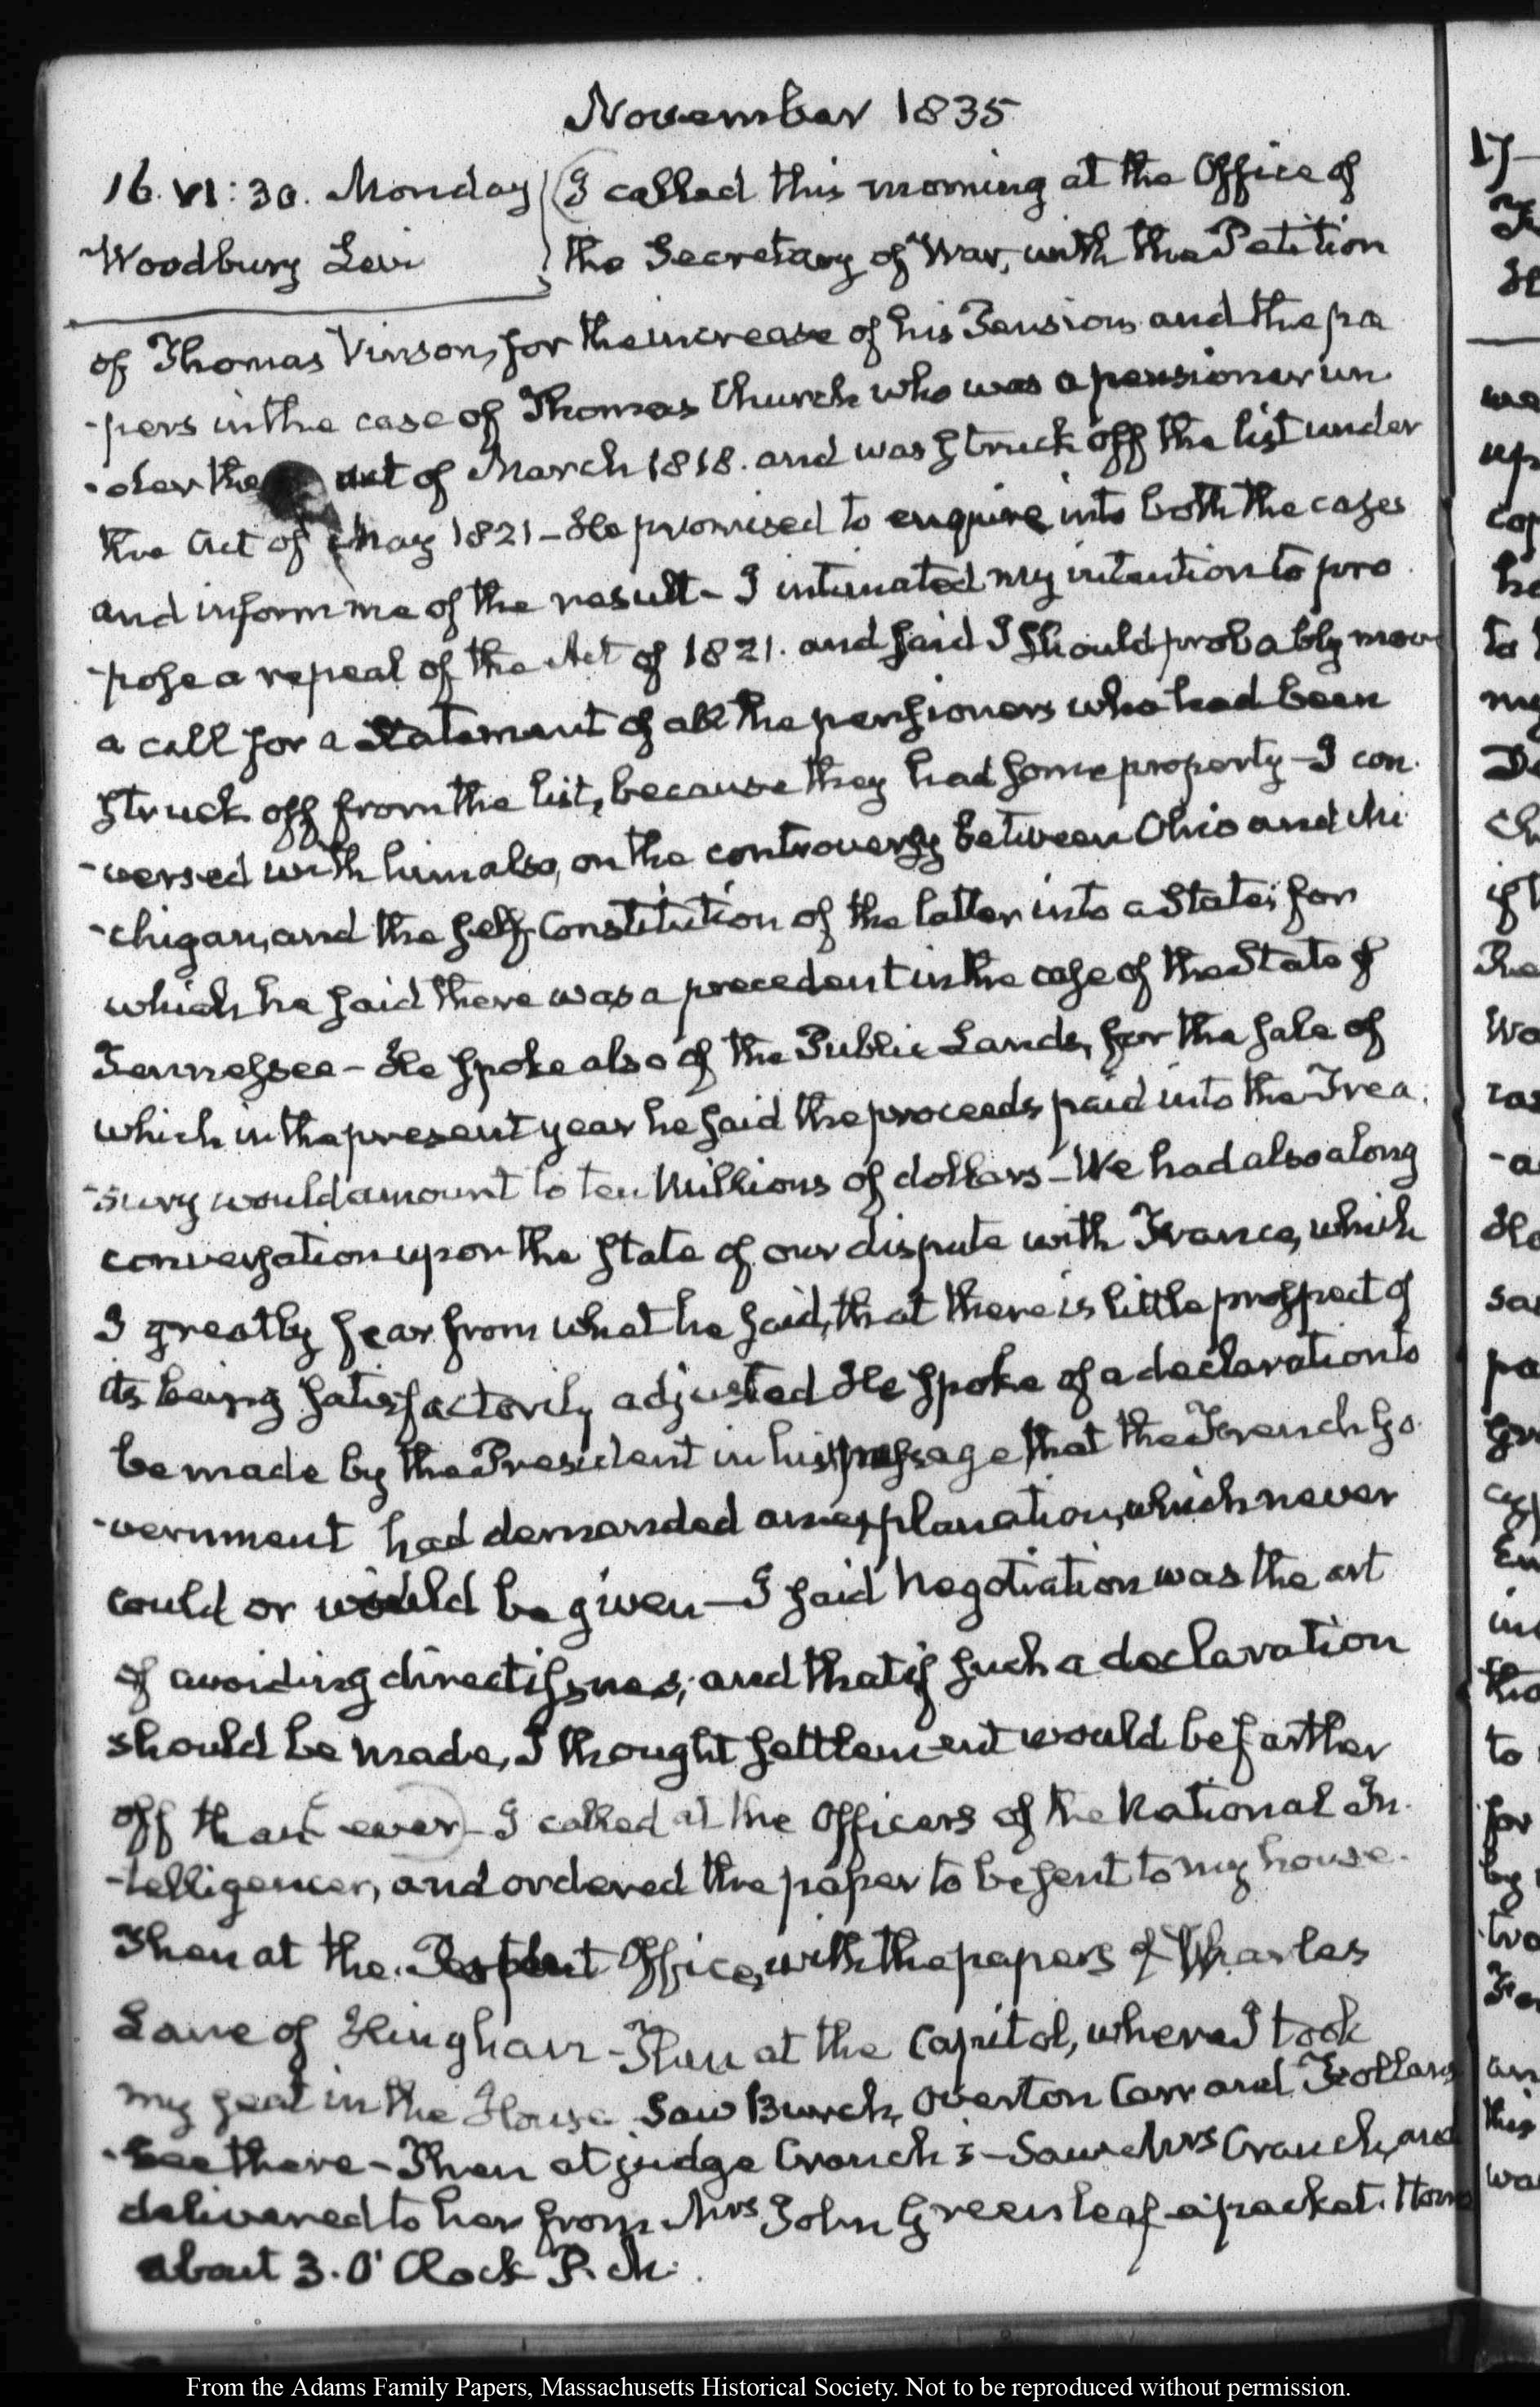 November 1835
16. VI:30. Monday
Woodbury Levi
I called this morning at the Office of
the Secretary of War, with the Petition
of Thomas Vinson, for the increase of his Pension and the pa
-pers in the case of Thomas Church who was a pensioner un
-der the act of March 1818. and was struck off the list under
the Act of May 1821 - He promised to enquire into both the cases
and inform me of the result - I intimated my intention to pro
-pose a repeal of the Act of 1821. and said I should probably move
a call for a Statement of all the pensioners who had been
struck off from the list, because they had some property - I con
-versed with him also, on the controversy between Ohio and Mi
-chigan, and the self-Constitution of the latter into a State; for
which he said there was a precedent in the case of the State of
Tennessee - He spoke also of the Public Lands, for the sale of
which in the present year he said the proceeds paid into the Trea
-sury would amount to ten Millions of dollars - We had also a long
conversation upon the state of our dispute with France, which
I greatly fear from what he said, that there is little prospect of
its being satisfactorily adjusted He spoke of a declaration to
be made by the President in his message that the French Go
-vernment had demanded an explanation, which never
could or would be given - I said Negotiation was the art
of avoiding direct issues; and that if such a declaration
should be made, I thought settlement would be farther
off than ever - I called at the Officers of the National In
-telligencer, and ordered the paper to be sent to my house.
Then at the Office, with the papers of Charles
Lane of Hingham - Then at the Capitol, where I took
my seat in the House Saw Burch, Overton Carr and Follans
-bee there - Then at judge Cranch's - Saw Mrs Cranch, and
delivered to her from Mrs John Greenleaf a packet. Home
about 3. O'Clock P.M.
17-
From the Adams Family Papers, Massachusetts Historical Society. Not to be reproduced without permission.